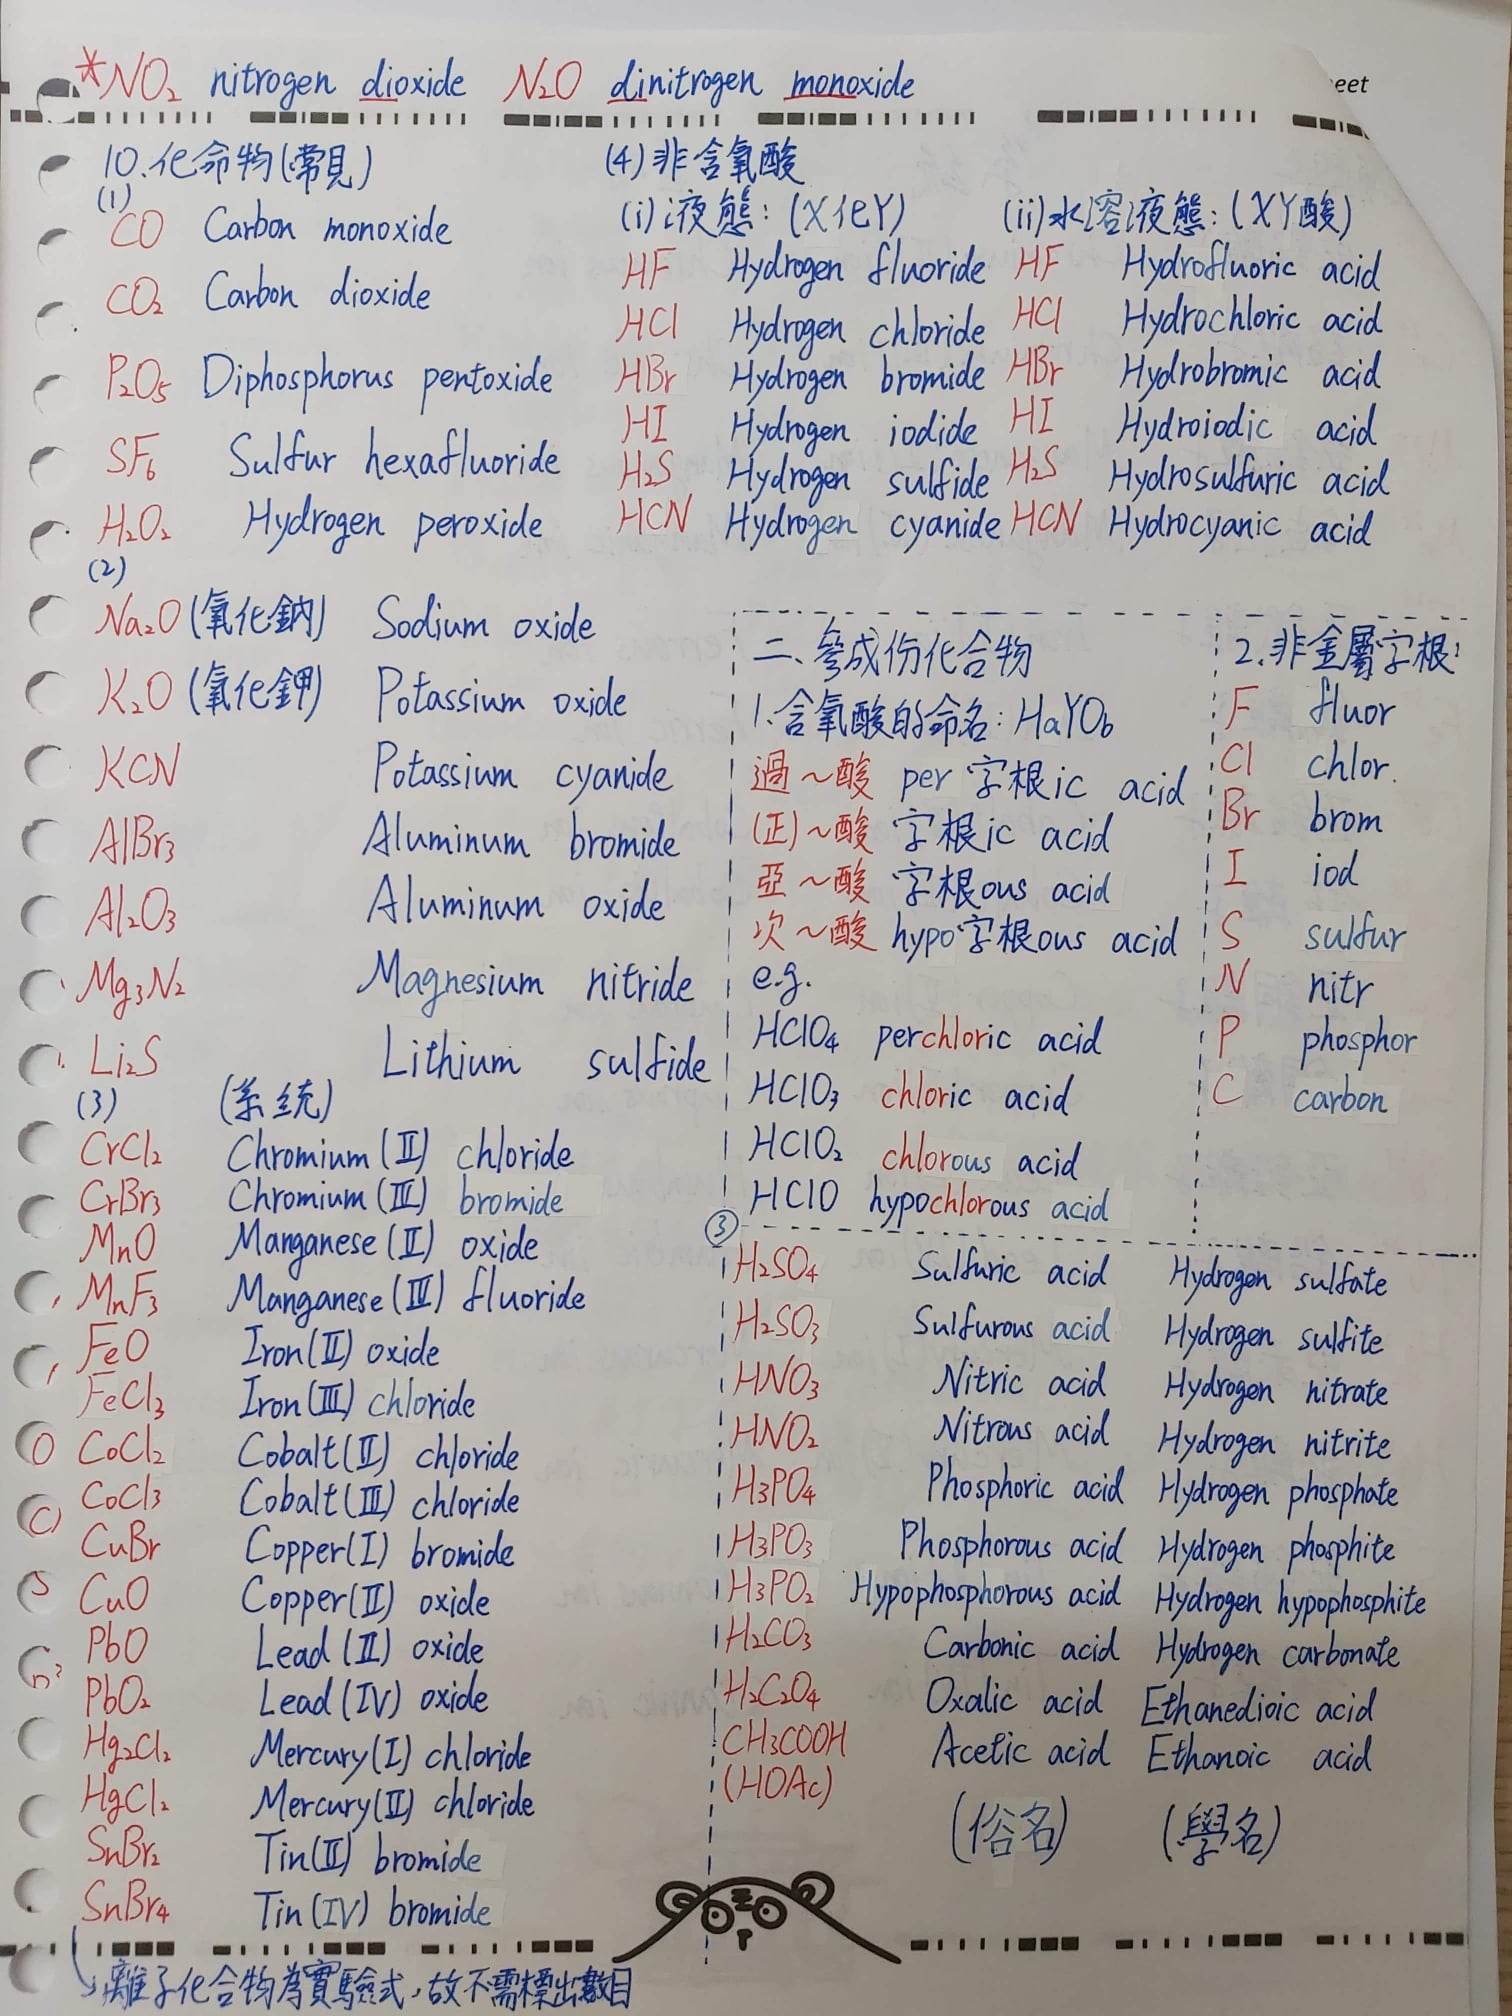 *NO₂ nitrogen dioxide N₂O dinitrogen monoxide
eet
10.化命物(常見)
(1)
CO Carbon monoxide
CO₂ Carbon dioxide
P₂O₅ Diphosphorus pentoxide
SF₆ Sulfur hexafluoride
H₂O₂ Hydrogen peroxide
(2)
Na₂O (氧化鈉) Sodium oxide
K₂O (氧化鉀) Potassium oxide
KCN Potassium cyanide
AlBr₃ Aluminum bromide
Al₂O₃ Aluminum oxide
Mg₃N₂ Magnesium nitride
Li₂S Lithium sulfide
(3) (系統)
CrCl₂ Chromium(II) chloride
CrBr₃ Chromium(III) bromide
MnO Manganese(II) oxide
MnF₃ Manganese(III) fluoride
FeO Iron(II) oxide
FeCl₃ Iron(III) chloride
CoCl₂ Cobalt(II) chloride
CoCl₃ Cobalt(III) chloride
CuBr Copper(I) bromide
CuO Copper(II) oxide
PbO Lead(II) oxide
PbO₂ Lead(IV) oxide
Hg₂Cl₂ Mercury(I) chloride
HgCl₂ Mercury(II) chloride
SnBr₂ Tin(II) bromide
SnBr₄ Tin(IV) bromide
離子化合物為實驗式,故不需標出數目
(4)非含氧酸
(i)液態:(X化Y)
HF Hydrogen fluoride
HCl Hydrogen chloride
HBr Hydrogen bromide
HI Hydrogen iodide
H₂S Hydrogen sulfide
HCN Hydrogen cyanide
(ii)水溶液態:(XY酸)
HF Hydrofluoric acid
HCl Hydrochloric acid
HBr Hydrobromic acid
HI Hydroiodic acid
H₂S Hydrosulfuric acid
HCN Hydrocyanic acid
二、參成份化合物
1.含氧酸的命名:HaYOb
過~酸 per字根ic acid
(正)~酸 字根ic acid
亞~酸 字根ous acid
次~酸 hypo字根ous acid
e.g.
HClO₄ perchloric acid
HClO₃ chloric acid
HClO₂ chlorous acid
HClO hypochlorous acid
2.非金屬字根:
F fluor
Cl chlor.
Br brom
I iod
S sulfur
N nitr
P phosphor
C carbon
③
H₂SO₄ Sulfuric acid Hydrogen sulfate
H₂SO₃ Sulfurous acid Hydrogen sulfite
HNO₃ Nitric acid Hydrogen nitrate
HNO₂ Nitrous acid Hydrogen nitrite
H₃PO₄ Phosphoric acid Hydrogen phosphate
H₃PO₃ Phosphorous acid Hydrogen phosphite
H₃PO₂ Hypophosphorous acid Hydrogen hypophosphite
H₂CO₃ Carbonic acid Hydrogen carbonate
H₂C₂O₄ Oxalic acid Ethanedioic acid
CH₃COOH Acetic acid Ethanoic acid
(HOAc)
(俗名) (學名)